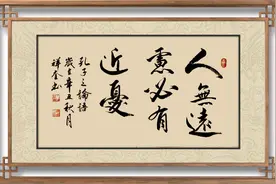 人無遠
慮必有
近憂
孔子之論語
歲在辛丑秋月
祥奎书